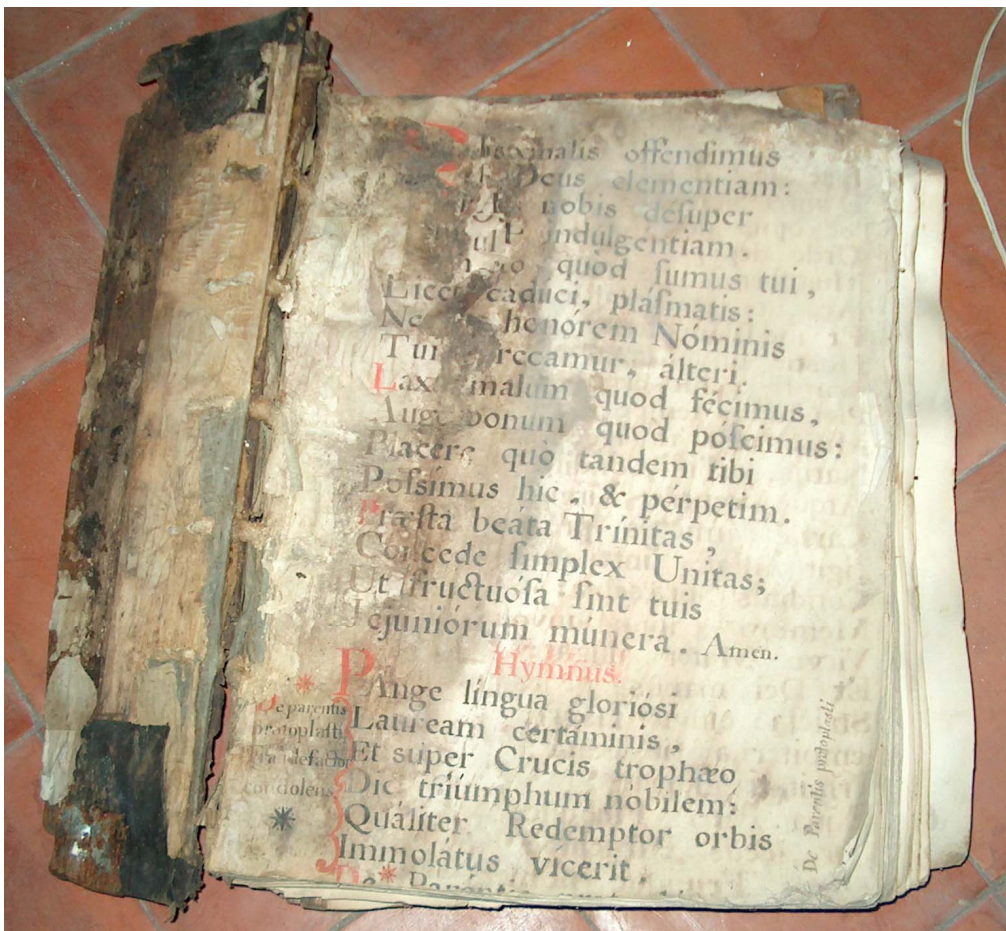 malis offendimus
Deus clementiam:
nobis désuper
indulgéntiam.
quòd ſumus tui,
Licet caduci, pláſmatis:
Ne honórem Nóminis
Tui precamur, álteri.
Lax malum quod fécimus,
Auge bonum quod póſcimus:
Placere quò tandem tibi
Poſsímus hic, & pérpetim.
Præſta beáta Trínitas,
Concede ſimplex Unitas;
Ut fructuóſa ſint tuis
Jejuniórum múnera. Amen.
Hymnus.
PAnge língua gloriósi
Lauream certaminis,
Et super Crucis trophæo
Dic triúmphum nóbilem:
Quáliter Redemptor orbis
Immolátus vícerit.
De * Paréntis
* De parentis
protoplaſti
Fraude factor
condolens
De Parentis protoplaſti